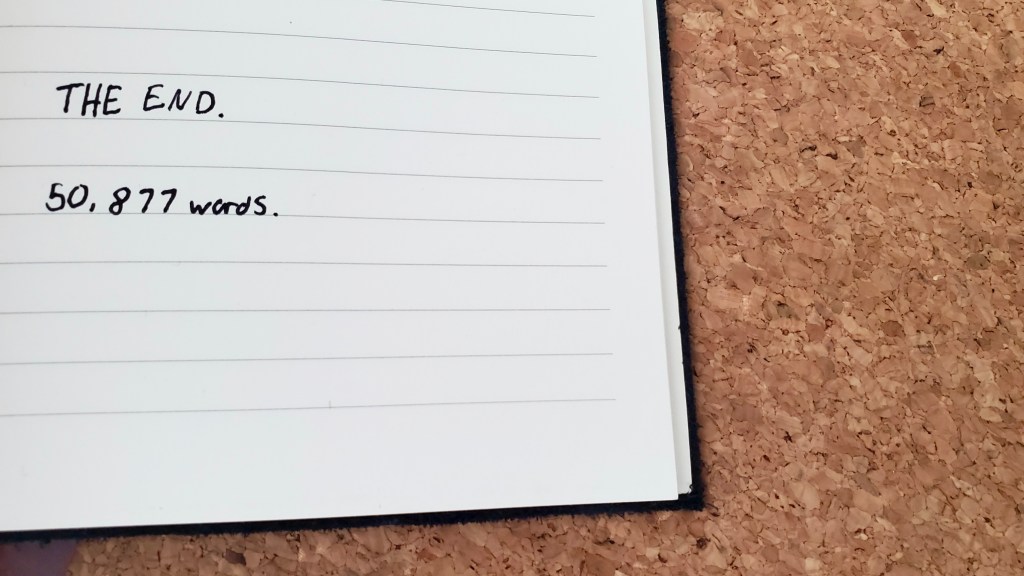 THE END.
50,877 words.